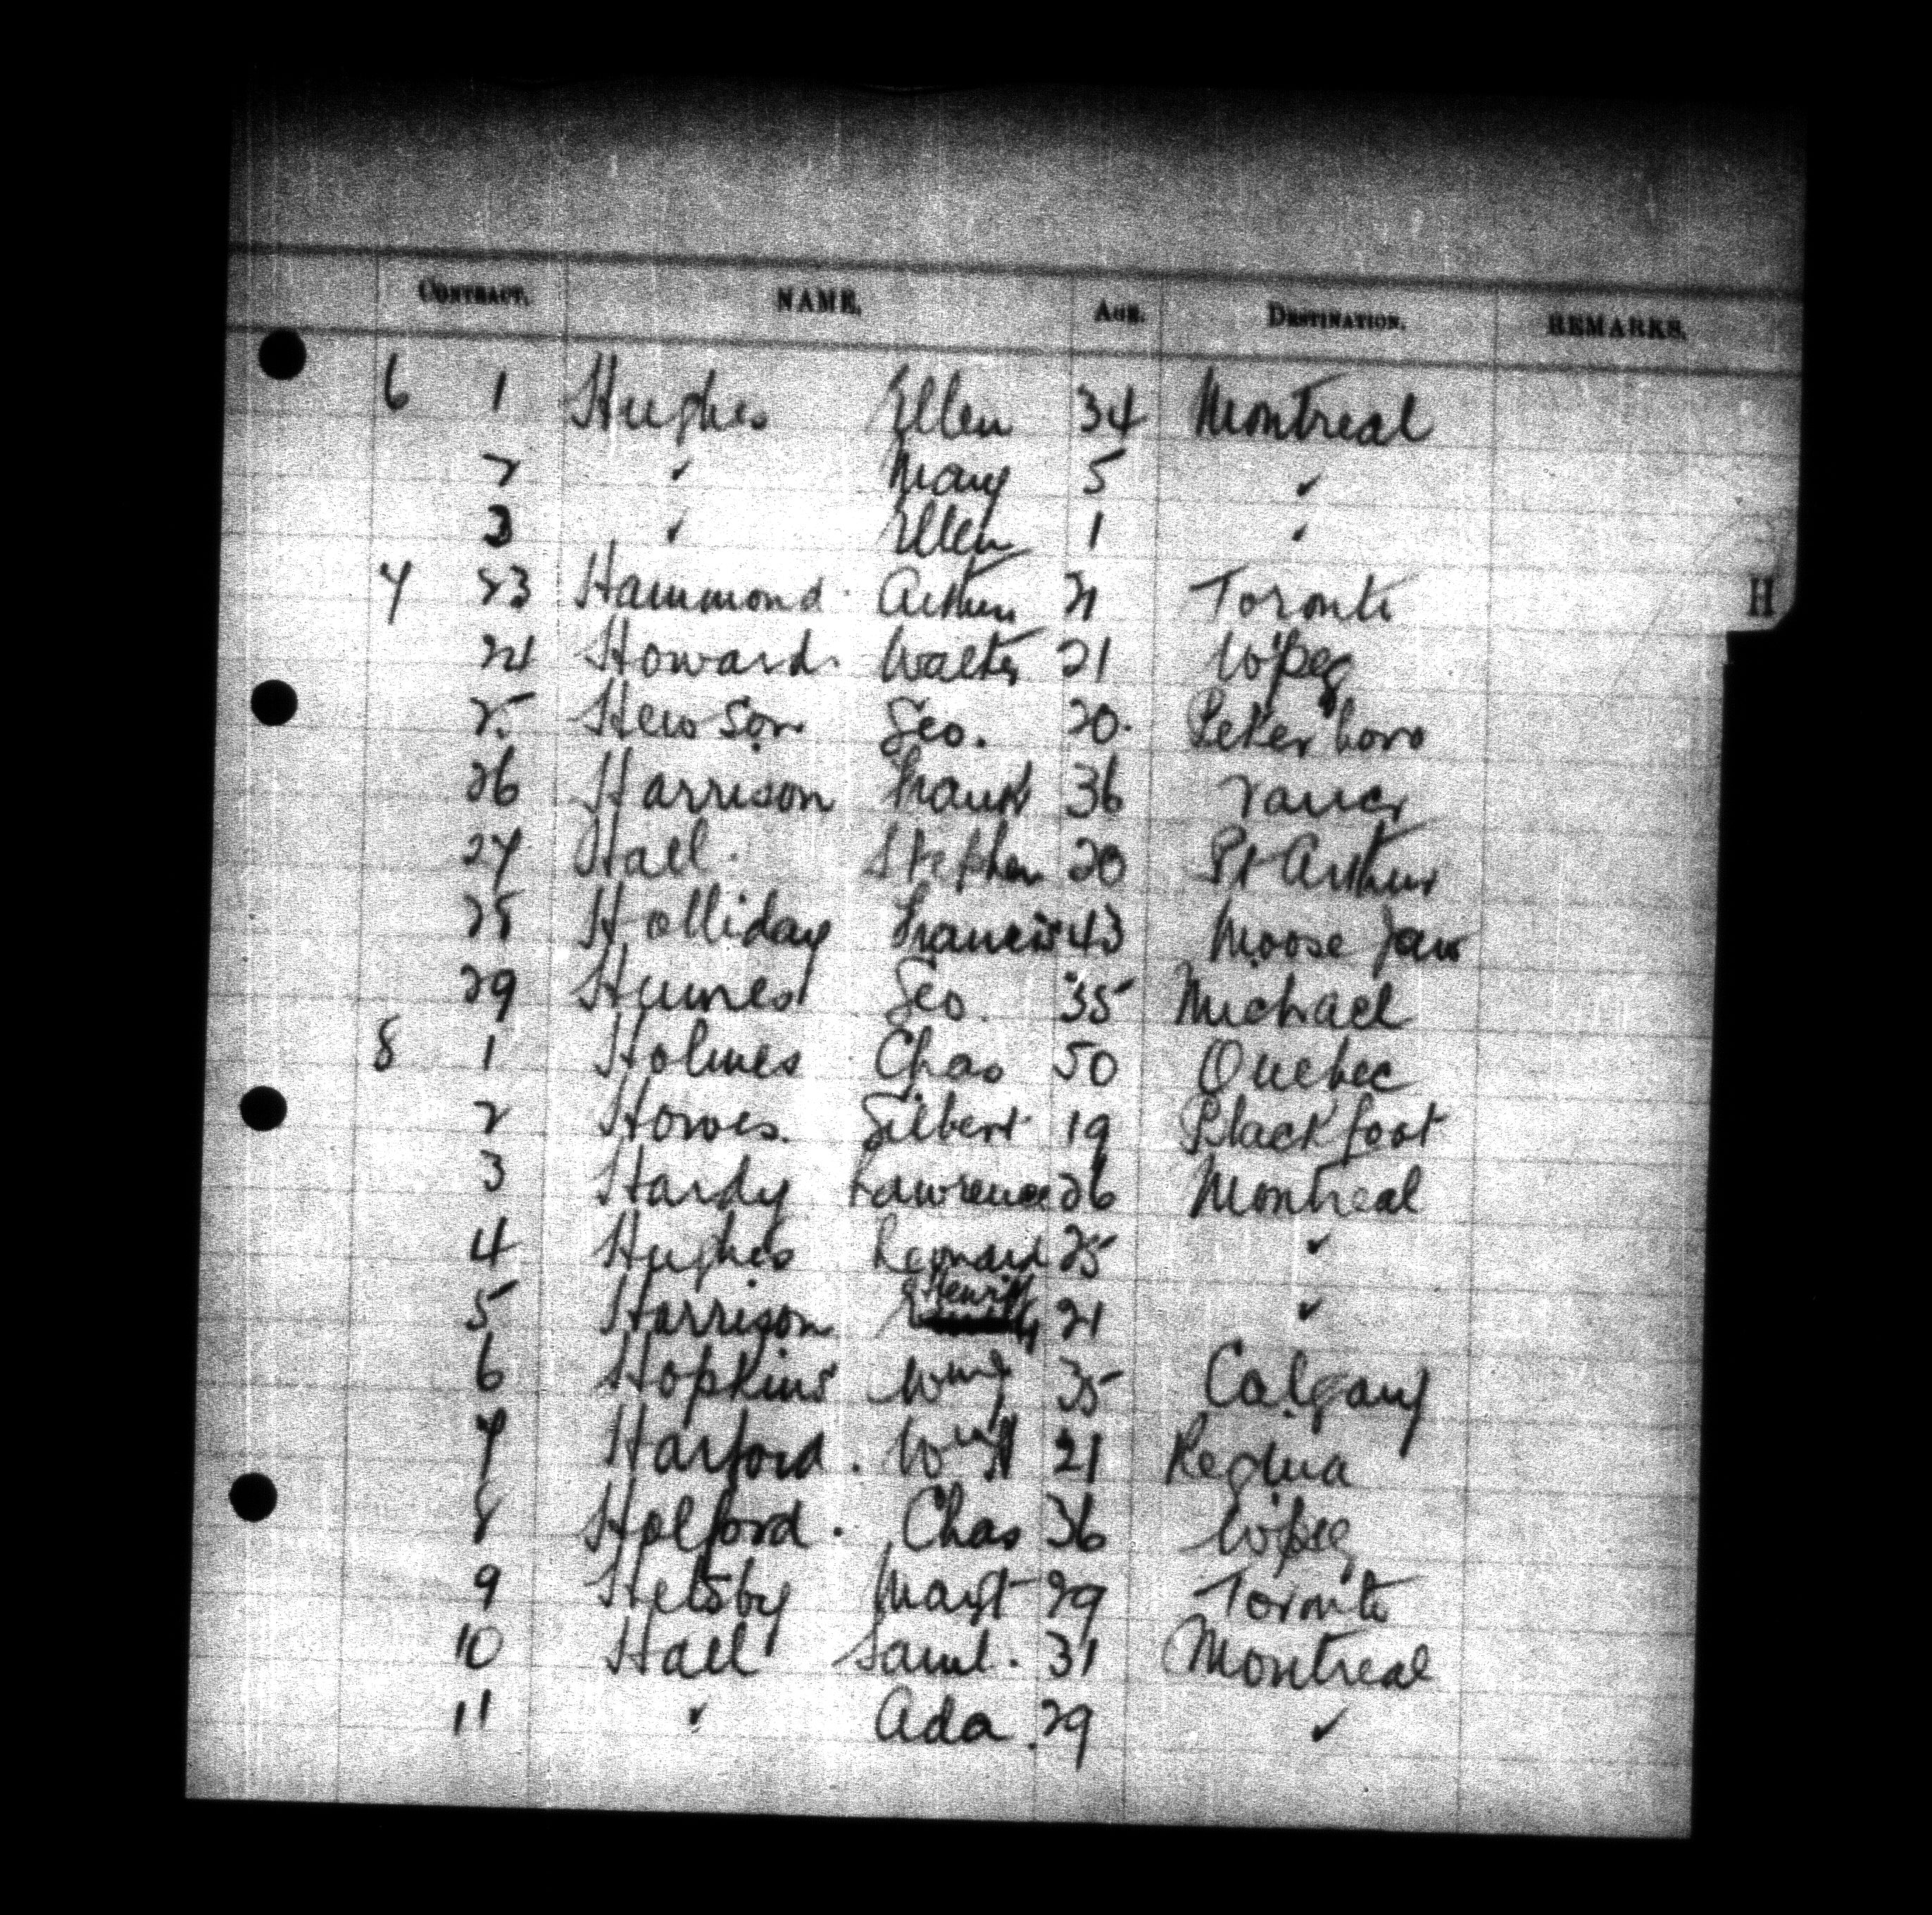 CONTRACT. NAME. AGE. DESTINATION. REMARKS.
6 1 Hughes Ellen 34 Montreal
2 " Mary 5 "
3 " Ellen 1 "
H
7 23 Hammond Arthur 21 Toronto
24 Howard Walter 21 W'peg
25 Hewson Geo. 20 Peterboro
26 Harrison Frank 36 Vancr
27 Hall Stephen 20 Pt Arthur
28 Holliday Francis 43 Moose Jaw
29 Humes Geo. 35 Michael
8 1 Holmes Chas 50 Quebec
2 Howes Gilbert 19 Blackfoot
3 Hardy Lawrence 26 Montreal
4 Hughes Leonard 25 "
5 Harrison 21 "
6 Hopkins Wm 35 Calgary
7 Harford Wm 21 Regina
8 Holford Chas 36 W'peg
9 Helsby Margt 29 Toronto
10 Hall Saml. 31 Montreal
11 " Ada 29 "